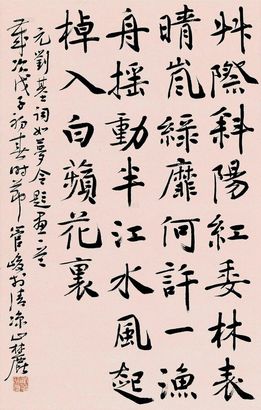 艸際斜陽紅委林表
晴嵐綠靡何許一漁
舟搖動半江水風起
棹入白蘋花裏
元劉基詞如夢令題畫一首
歲次戊子初春時節管峻於清涼山麓